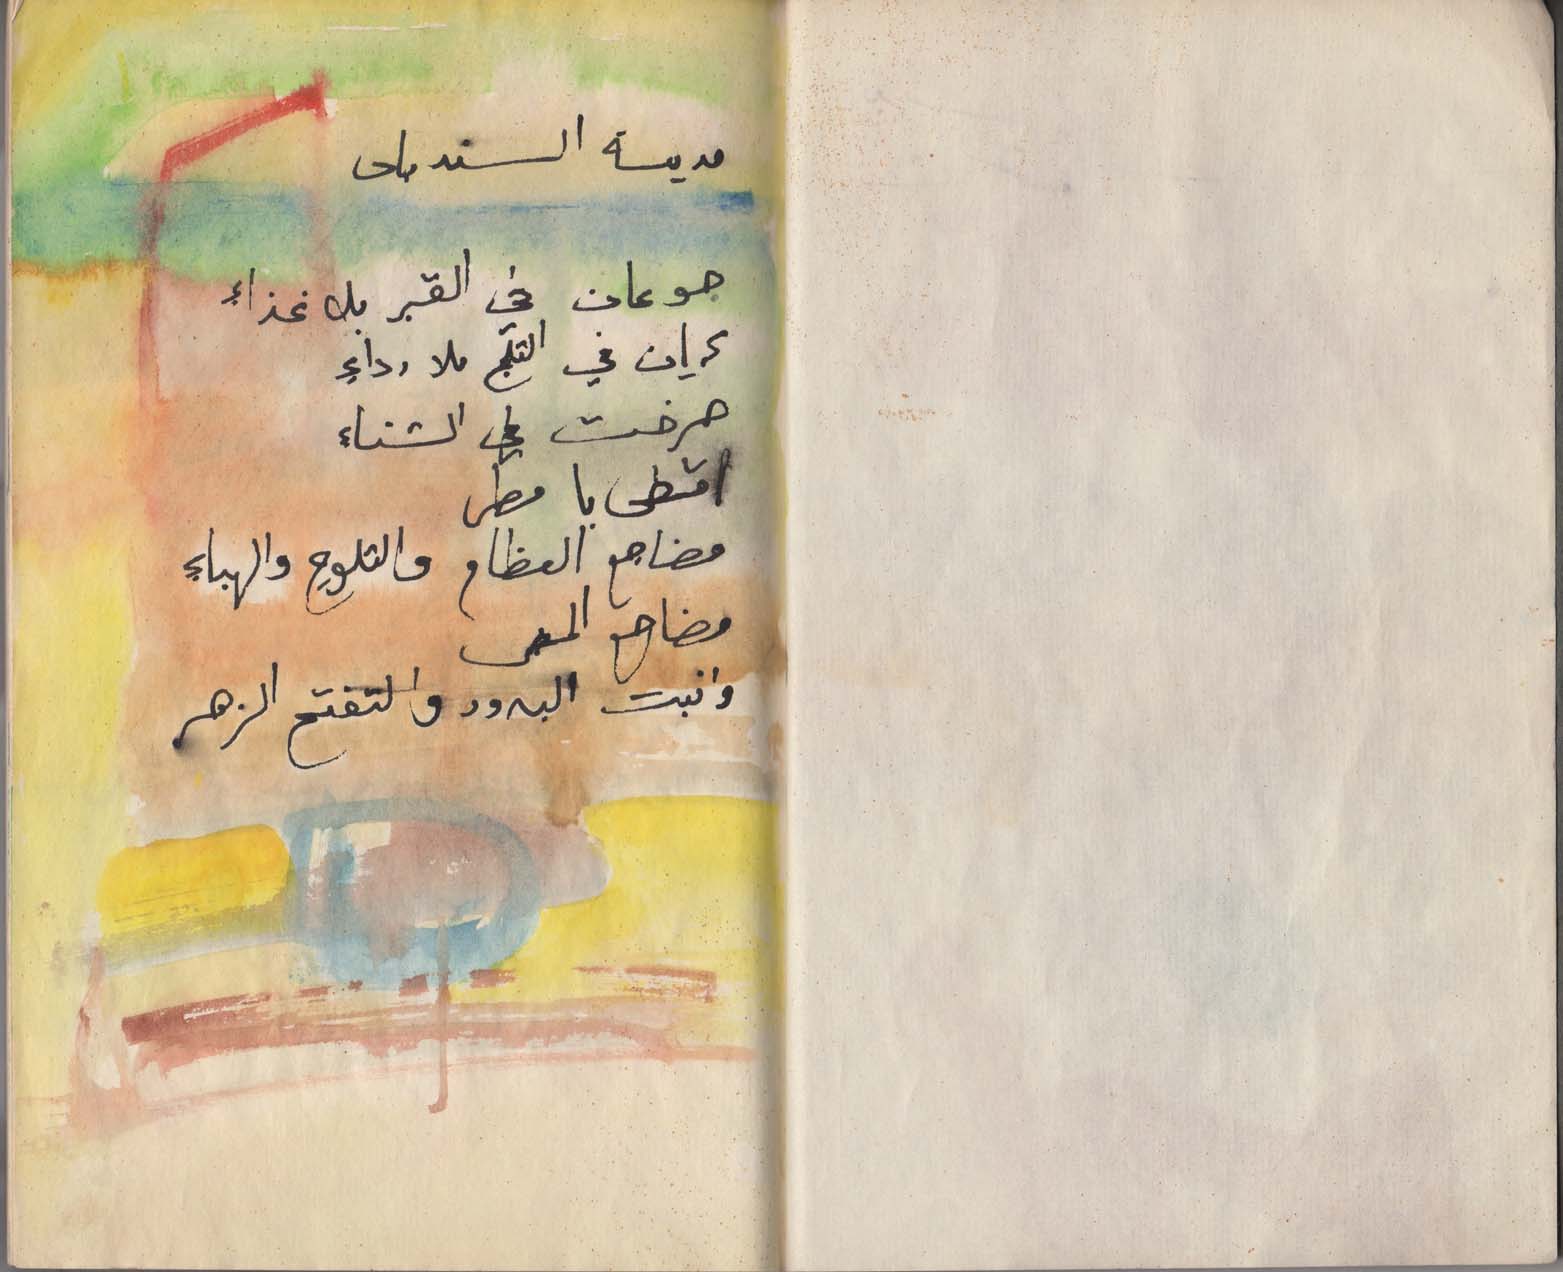 مدينة السندباد
جوعان في القبر بلا غذاء
عريان في الثلج بلا رداء
صرخت في الشتاء
اقضي يا مطر
مضاجع العظام والثلوج والهباء
مضاجع
وانبت البذور والتفتح الزهر